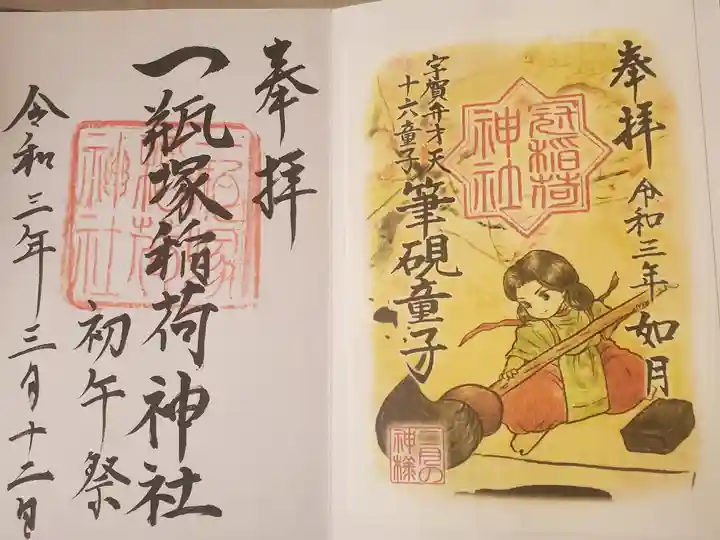 奉拝
令和三年 如月
冠稲荷
神社
宇賀弁才天
十六童子
筆硯童子
二月の
神様
奉拝
一瓶塚稲荷神社
初午祭
令和三年三月十二日